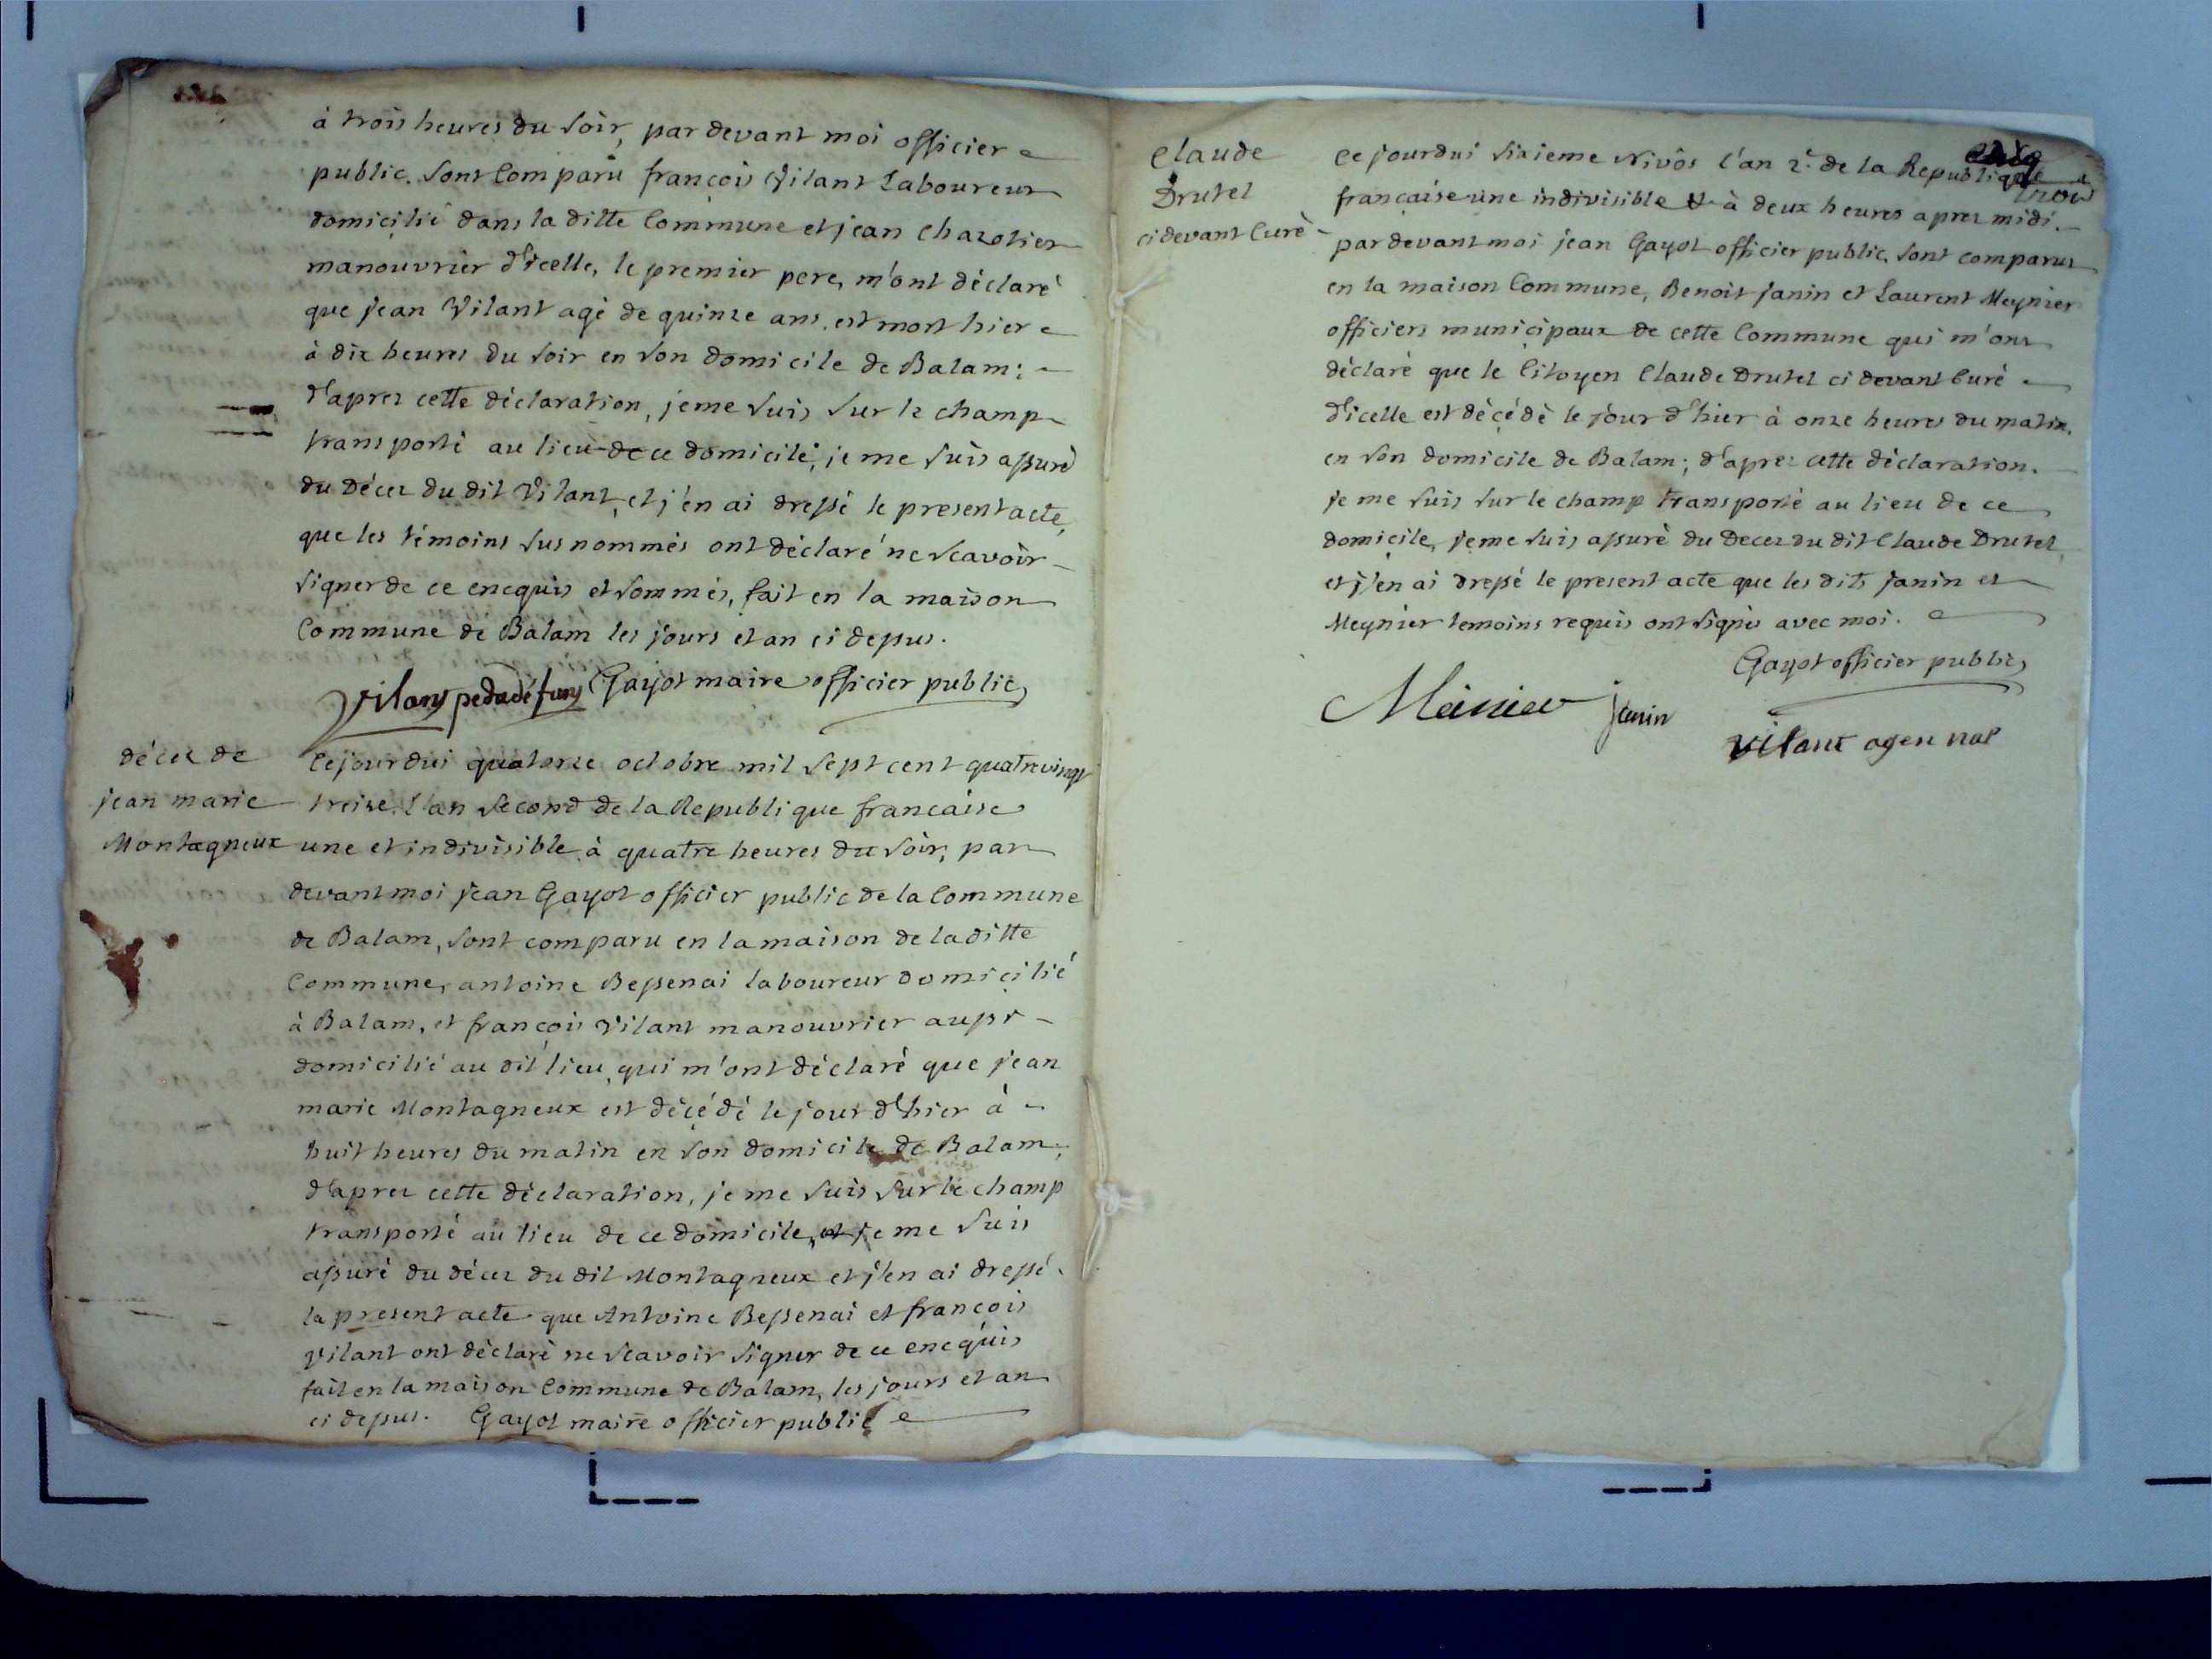 à trois heures du soir, par devant moi officier
public. sont comparu françois Vilant Laboureur
domicilié dans la ditte Commune et jean Chazotier
manouvrier d'icelle, le premier pere, m'ont déclaré
que jean Vilant agé de quinze ans est mort hier
à dix heures du soir en son domicile de Balam ;
d'aprez cette déclaration, je me suis sur le champ
transporté au lieu de ce domicile, je me suis assuré
du Décez du dit Vilant, et j'en ai dressé le present acte,
que les témoins sus nommés ont déclaré ne scavoir
signer de ce encquis et sommés, fait en la maison
Commune de Balam les jours et an ci dessus.
Gayot maire officier public
décez de
jean marie
Montagneux
Cejourdui quatorze octobre mil sept cent quatrevingt
treize. l'an second de la Republique francaise
une et indivisible à quatre heures du soir, par
devant moi jean Gayot officier public de la Commune
de Balam, sont comparu en la maison de la ditte
Commune, antoine Bessenai laboureur domicilié
à Balam, et françois Vilant manouvrier aussi
domicilié au dit lieu qui m'ont déclaré que jean
marie Montagneux est décédé le jour d'hier à
huit heures du matin en son domicile de Balam ;
d'aprez cette déclaration, je me suis sur le champ
transporté au lieu de ce domicile, et je me suis
assuré du décez du dit Montagneux et j'en ai dressé
le present acte que Antoine Bessenai et francois
Vilant ont déclaré ne scavoir signer de ce encquis
fait en la maison Commune de Balam, les jours et an
ci dessus. Gayot maire officier public
trois
Claude
Drutel
ci devant Curé
Ce jourdui sixieme Nivôs l'an 2e. de la Republique
française une indivisible & à deux heures aprez midi.
par devant moi jean Gayot officier public sont comparus
en la maison Commune, Benoit janin et Laurent Meynier
officiers municipaux de cette Commune qui m'ont
déclaré que le Citoyen Claude Drutel ci devant Curé
d'icelle est décédé le jour d'hier à onze heures du matin.
en son domicile de Balam ; d'aprez cette déclaration.
je me suis sur le champ transporté au lieu de ce
domicile, je me suis assuré du Decez du dit Claude Drutel
et j'en ai dressé le present acte que les dits janin et
Meynier temoins requis ont signés avec moi.
Gayot officier public
Meinier janin
vilant agen nal